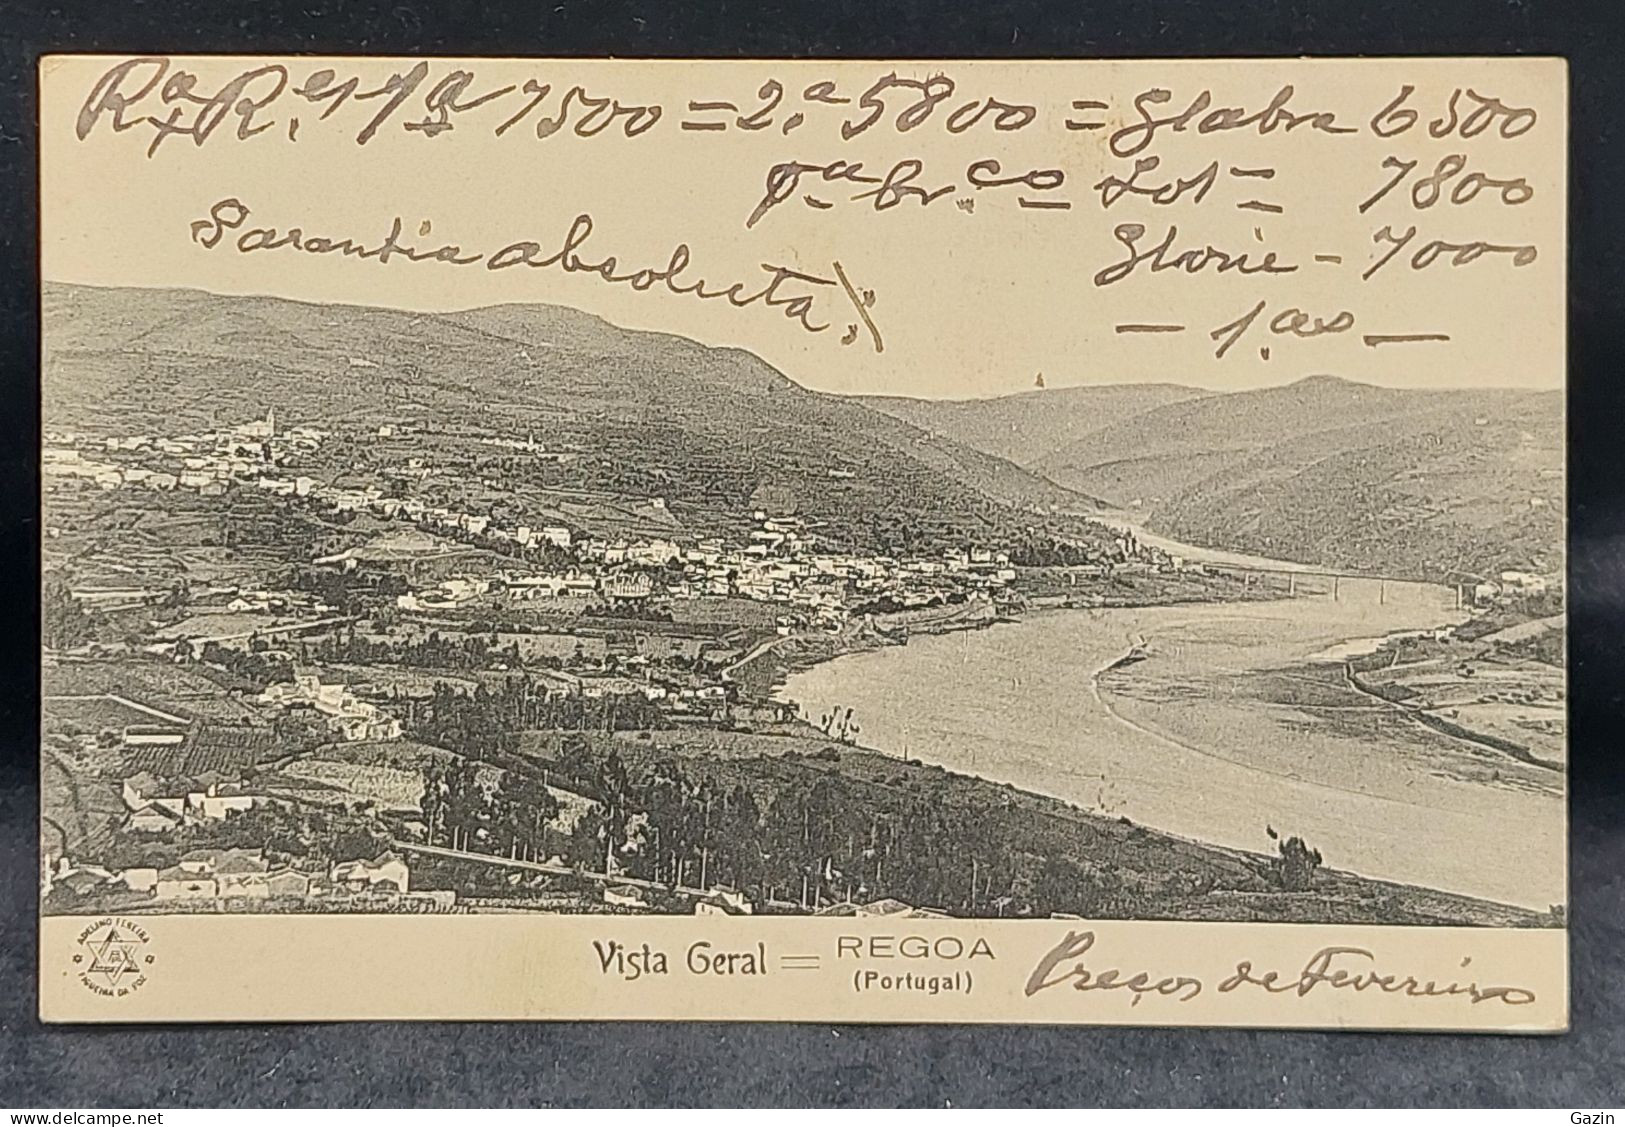 Rª × R.es 1ª 7500 = 2.ª 5800 = Glabra 6500
pª br.co Lot = 7800
Garantia absoluta.
Glorie - 7000
- 1.as -
ADELINO FEREIRA
FIGUEIRA DA FOZ
Vista Geral = REGOA
(Portugal)
Preços de Fevereiro
delcampe.net
Gazin